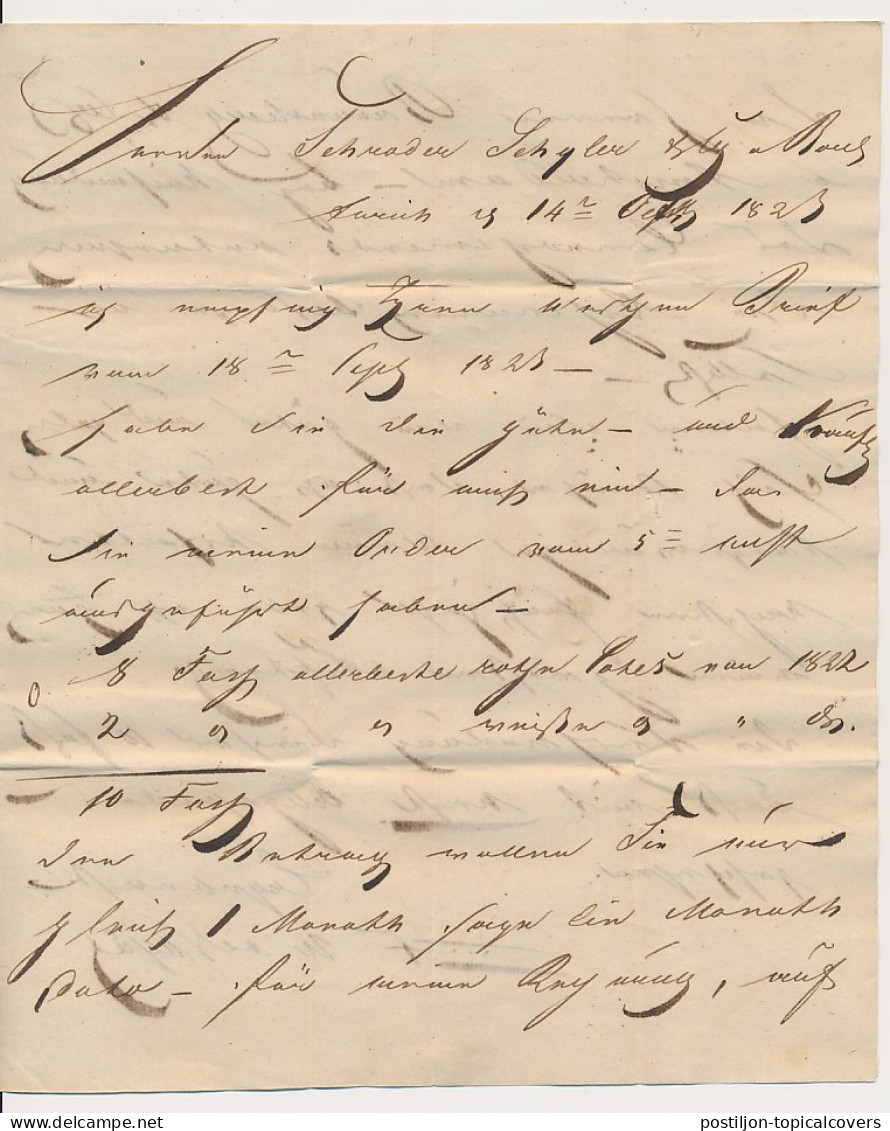 Herren Schroder Schyler & Cie a Bord
Zurich 14ten 1823
Ich empfing Ihren werthen Brief
vom 18ten Sept 1823 —
haben Sie die Güte — und
allerbest für mich ein — das
Sie meine Order vom 5ten
ausgeführt haben —
8 Fass allerbeste rothe Cotes von 1822
2 " " weiße " " do.
10 Fass
den Betrag wollen Sie nur
gleich 1 Monath sage Ein Monath
Dato — für meine Rechnung, auf
postiljon-topicalcovers